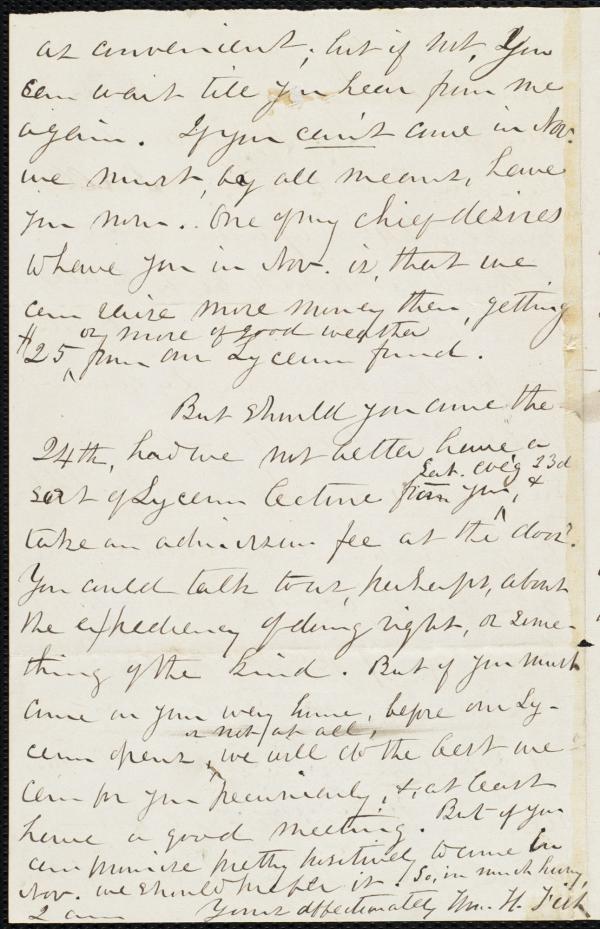 as convenient; but if not, you
can wait till you hear from me
again. If you can't come in Nov.
we must, by all means, have
you now. One of my chief desires
to have you in Nov. is, that we
can raise more money then, getting
or more of good weather
$25, ^ from our Lyceum fund.
But should you come the
24th, had we not better have a
Sat. eve'g 23d
sort of Lyceum lecture from you, ^ &
take an admission fee at the door?
You could talk to us, perhaps, about
the expediency of doing right, or some-
thing of the kind. But if you must
come on your way home, before our Ly-
or not at all,
ceum opens, ^ we will do the best we
can for you pecuniarily, &, at least
have a good meeting. But if you
can promise pretty positively to come in
Nov. we should prefer it. So, in much hurry,
I am Yours affectionately Wm. H. Fish